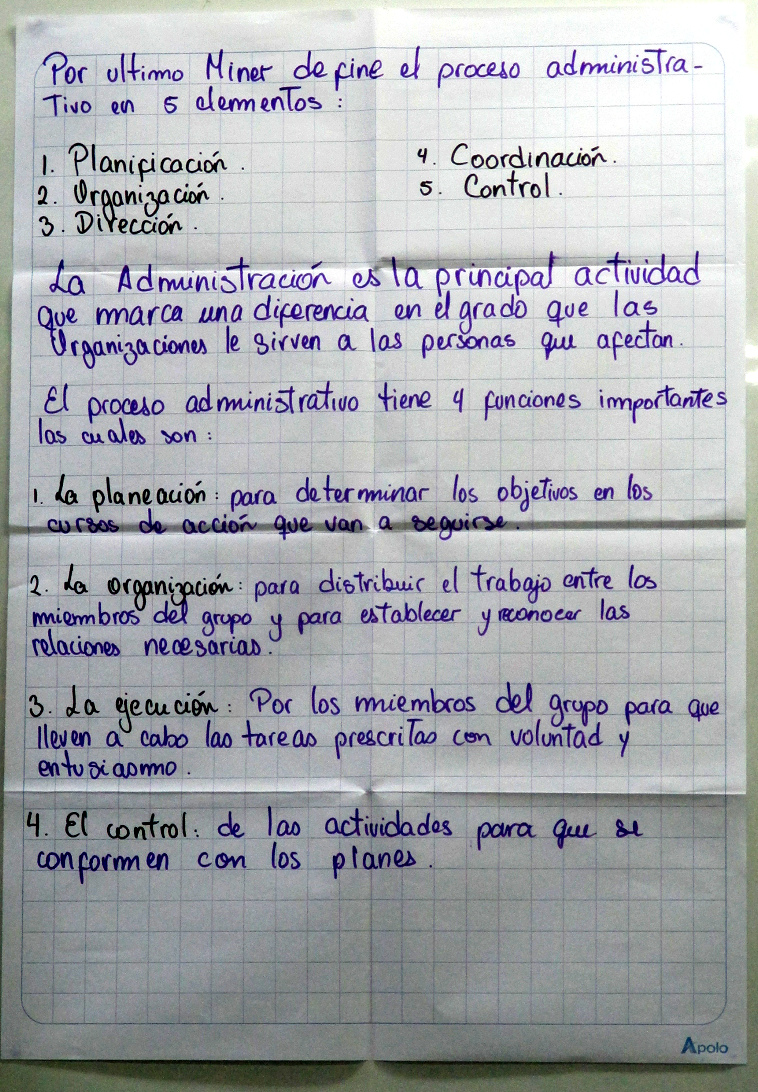 Por ultimo Miner define el proceso administra-
Tivo en 5 elementos:
1. Planificación.
2. Organización.
3. Dirección.
4. Coordinación.
5. Control.
La Administración es la principal actividad
que marca una diferencia en el grado que las
Organizaciones le sirven a las personas que afectan.
El proceso administrativo tiene 4 funciones importantes
las cuales son:
1. La planeación: para determinar los objetivos en los
cursos de acción que van a seguirse.
2. La organización: para distribuir el trabajo entre los
miembros del grupo y para establecer y reconocer las
relaciones necesarias.
3. La ejecución: Por los miembros del grupo para que
lleven a cabo las tareas prescritas con voluntad y
entusiasmo.
4. El control: de las actividades para que se
conformen con los planes.
Apolo